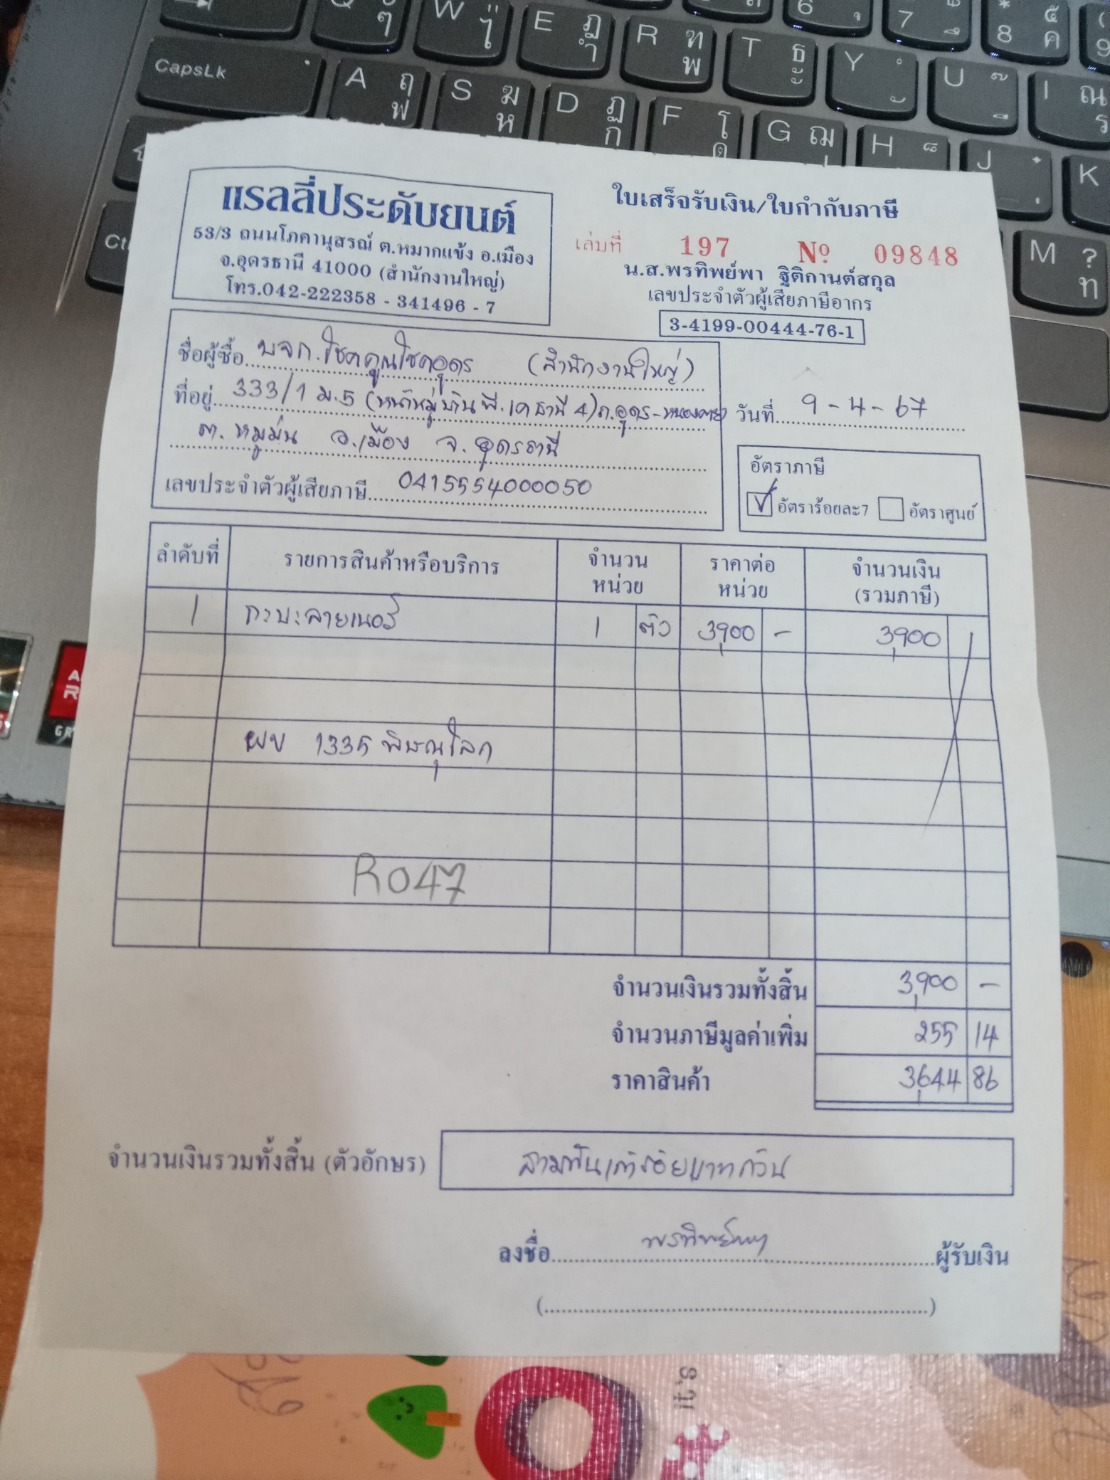 แรลลี่ประดับยนต์
53/3 ถนนโภคานุสรณ์ ต.หมากแข้ง อ.เมือง
จ.อุดรธานี 41000 (สำนักงานใหญ่)
โทร.042-222358 - 341496 - 7
ใบเสร็จรับเงิน/ใบกำกับภาษี
เล่มที่ 197 Nº 09848
น.ส.พรทิพย์พา ฐิติกานต์สกุล
เลขประจำตัวผู้เสียภาษีอากร
3-4199-00444-76-1
ชื่อผู้ซื้อ บจก.โชคคูณโชคอุดร (สำนักงานใหญ่)
ที่อยู่ 333/1 ม.5 (หน้าหมู่บ้าน พี.เค ธานี 4) ถ.อุดร-หนองคาย
ต.หมูม่น อ.เมือง จ.อุดรธานี
เลขประจำตัวผู้เสียภาษี 0415554000050
วันที่ 9-4-67
อัตราภาษี
อัตราร้อยละ7 อัตราศูนย์
ลำดับที่ รายการสินค้าหรือบริการ จำนวนหน่วย ราคาต่อหน่วย จำนวนเงิน (รวมภาษี)
1 กะบะลายเนอร์ 1 ตัว 3,900 - 3,900
ผบ 1335 พิษณุโลก
R047
จำนวนเงินรวมทั้งสิ้น 3,900 -
จำนวนภาษีมูลค่าเพิ่ม 255 14
ราคาสินค้า 3,644 86
จำนวนเงินรวมทั้งสิ้น (ตัวอักษร) สามพันเก้าร้อยบาทถ้วน
ลงชื่อ พรทิพย์พา ผู้รับเงิน
CapsLk
A ฤ ฟ S ฆ ห D ฏ ก F โ ด G ฌ H J K
W ไ E ฎ ำ R ฑ พ T ธ ะ Y U I ณ ร
M ? ท
6 7 8 ๕ ค 9